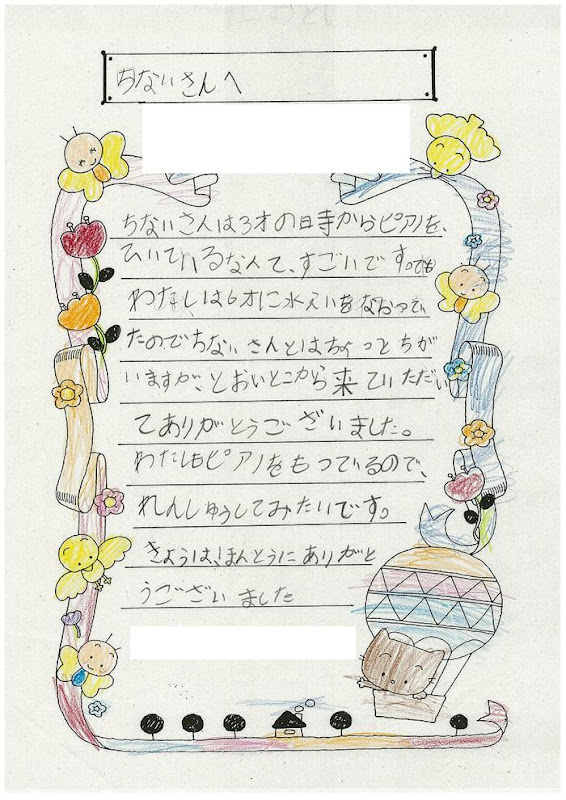 ちないさんへ
ちないさんは3才の日寺からピアノを、
ひいているなんて、すごいです。でも
わたしは6才に水えいをなおってい
たのでちないさんとはちょっとちが
いますが、とおいとこから来ていただい
てありがとうございました。
わたしもピアノをもっているので、
れんしゅうしてみたいです。
きょうは、ほんとうにありがと
うございました